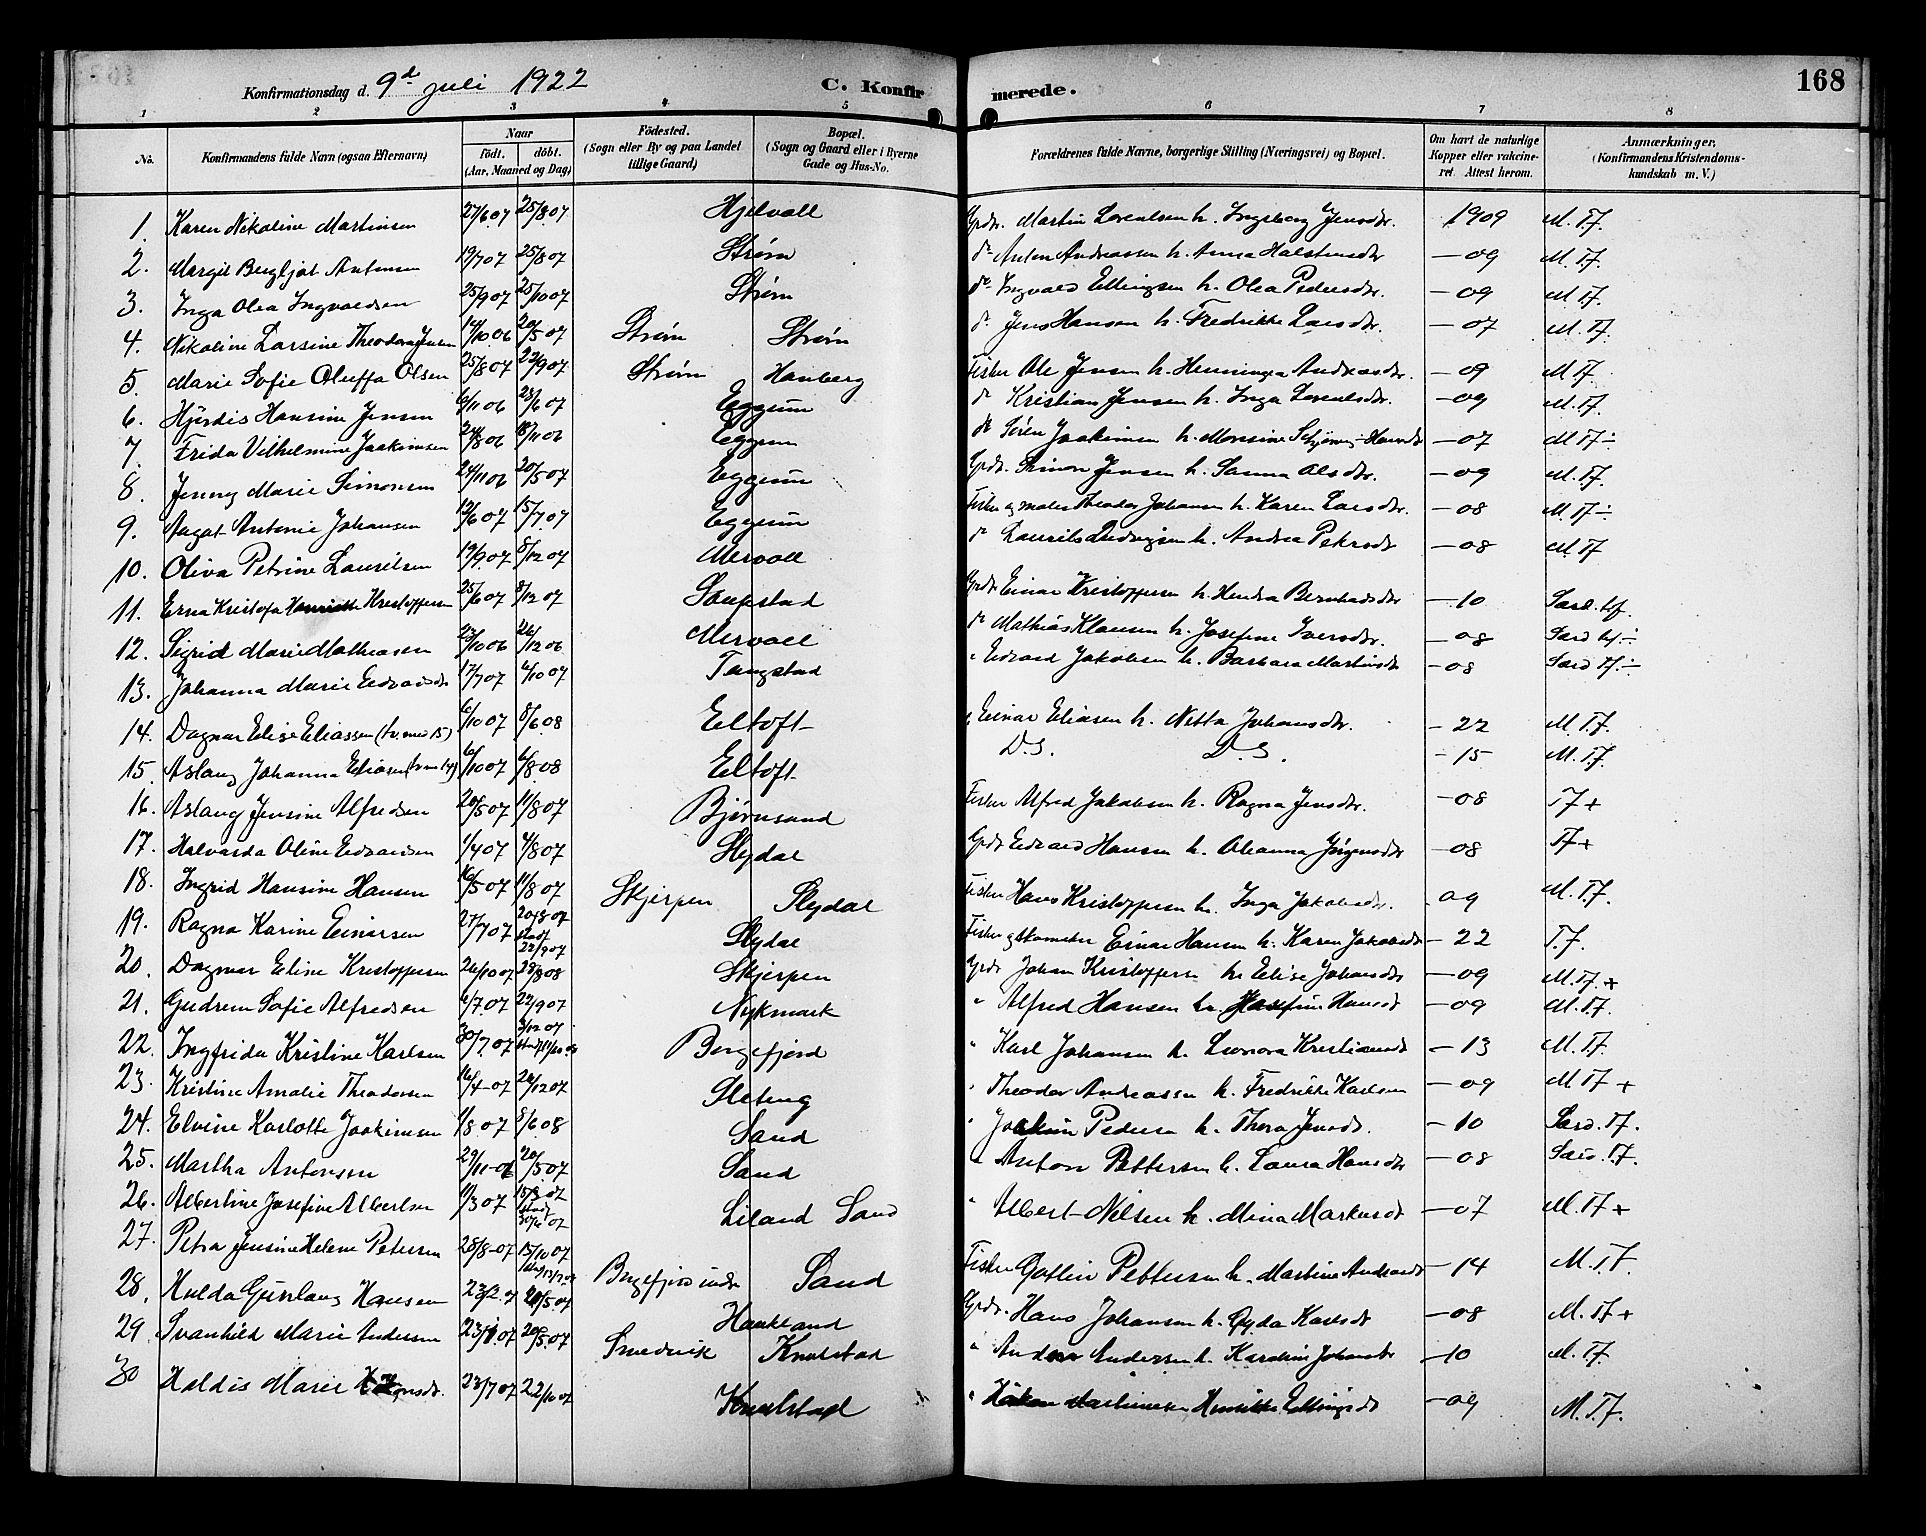 Konfirmationsdag d. 9d juli 1922 C. Konfirmerede. 168
1 2 3 4 5 6 7 8
No. Konfirmandens fulde Navn (ogsaa Efternavn) Naar födt. döbt. (Aar, Maaned og Dag) Födested. (Sogn eller By og paa Landet tillige Gaard) Bopæl. (Sogn og Gaard eller i Byerne Gade og Hus-No. Forældrenes fulde Navne, borgerlige Stilling (Næringsvei) og Bopæl. Om havt de naturlige Kopper eller vakcineret. Attest herom. Anmærkninger, (Konfirmandens Kristendomskundskab m. V.)
1. Karen Nikoline Martinsen 27/6.07 25/8.07 Hjelvoll Grdr. Martin Lorentsen h. Ingeborg Jensdr. 1909 M. Tf.
2. Margit Bergljot Antonsen 19/7 07 25/8 07 Strøm do Anton Andreassen h. Anna Halstensdr - 09 M. Tf.
3. Inga Olea Ingvaldsen 25/9 07 25/10 07 Strøm do Ingvald Ellingsen h. Olea Pedersdr. - 09 M Tf.
4. Nikoline Larsine Theodora Jensen 14/10 06 20/5 07 Strøm Strøm do Jens Hansen h. Fredrikke Larsdr. - 07 M Tf.
5. Marie Sofie Oluffa Olsen 25/8 07 22/9 07 Strøm Hanberg Fisker Ole Jensen h. Henninga Andreasdr. - 09 M Tf.
6. Hjørdis Hansine Jensen 6/11 06 23/6 07 Eggum do Kristian Jensen h. Inga Lorentsdr. - 09 M. Tf.
7. Frida Vilhelmine Joakimsen 24/8 06 18/11 06 Eggum do Søren Joakimsen h. Monsine - 07 M Tf÷
8. Jenny Marie Simonsen 24/11 06 20/5 07 Eggum Grdr. Simon Jensen h. Sanna Olsdr. - 09 M. Tf.
9. Aagot Antonie Johansen 12/6 07 15/7 07 Eggum Fisker og maler Theodor Johansen h. Karen Larsdr. - 08 M. Tf÷
10. Oliva Petrine Lauritsen 19/9 07 8/12 07 Mervoll do Laurits Ludvigsen h. Andrea Petersdr - 08 M Tf
11. Erna Kristofa Henriette Kristoffersen 25/6 07 8/12 07 Soupstad Grdr Einar Kristoffersen h. Hendra Bernhadsdr - 10 Særd. tf.
12. Sigrid Marie Mathiasen 23/10 06 26/12 06 Mervoll do Mathias Klausen h. Josefine Iversdr. - 08 Særd tf÷
13. Johanna Marie Edvardsdr 17/7 07 4/10 07 Tangstad " Edvard Jakobsen h. Barbara Martinsdr - 08 Særd Tf.÷
14. Dagmar Elise Eliassen (tv. med 15) 6/10 07 8/6.08 Eltoft " Einar Eliasen h. Netta Johansdr. - 22 M. Tf.
15. Aslaug Johanna Eliasen (tv med 14) 6/10 07 6/8.08 Eltoft D.S. D.S. - 15 M. Tf.
16. Aslaug Jensine Alfredsen 20/5 07 11/8 07 Bjørnsand Fisker Alfred Jakobsen h. Ragna Jensdr. - 08 Tf+
17. Halvarda Oline Edvardsen 1/4 07 4/8 07 Slydal Grdr Edvard Hansen h. Oleanna Jørgensdr - 08 Tf+
18. Ingrid Hansine Hansen 16/5 07 11/8 07 Skjerpen Slydal Fisker Hans Kristoffersen h. Inga Jakobsdr. - 09 M. Tf.
19. Ragna Karine Einarsen 27/7 07 20/8 07 stadf 22/9 07 Slydal Fisker og Einar Hansen h. Karen Jakobsdr - 22 T.f.
20. Dagmar Eline Kristoffersen 26/10 07 28/3 08 Skjerpen Grdr Johan Kristoffersen h. Elise Johansdr - 09 M. Tf.+
21. Gudrun Sofie Alfredsen 6/7.07 22/9 07 Nykmark " Alfred Hansen h. Josefine Hansdr - 09 M. Tf.
22. Ingfrida Kristine Karlsen 30/7.07 3/12 07 Borgefjord " Karl Johansen h. Leonora Kristiansdr - 13 M. Tf.
23. Kristine Amalie Theodorsen 16/4-07 26/12 07 Sleteng " Theodor Andreassen h. Fredrikke Karlsen - 09 M Tf+
24. Elvine Karlotte Joakimsen 1/8.07 8/6.08 Sand " Joakim Pedersen h. Thora Jensdr. - 10 Særd. Tf.
25. Martha Antonsen 29/11-06 20/5.07 Sand " Anton Pettersen h. Laura Hansdr - 08 Særd. Tf.
26. Albertine Josefine Albertsen 11/3 07 15/3.07 stadf 30/6 07 Liland Sand " Albert Nilsen h. Mina Markusdr - 07 M. Tf+
27. Petra Jensine Helene Petersen 28/8-07 13/10 07 Fisker Gotlin Pettersen h. Martine Andreasdr - 14 M. Tf.
28. Hulda Gunlaug Hansen 23/2.07 20/5 07 Borgefjord indr Sand Grdr. Hans Johansen h. Gyda Karlsdr - 08 M. Tf+
29. Svanhild Marie Andersen 23/1.07 20/5.07 Haukland
Smedvik Knutstad " Anders Andersen h. Karoline Johansdr - 10 M. Tf.
30 Haldis Marie 23/7 07 22/10 07 Knutstad " Håkon Martinsen Henrikke Ellingsdr - 09 M. Tf.